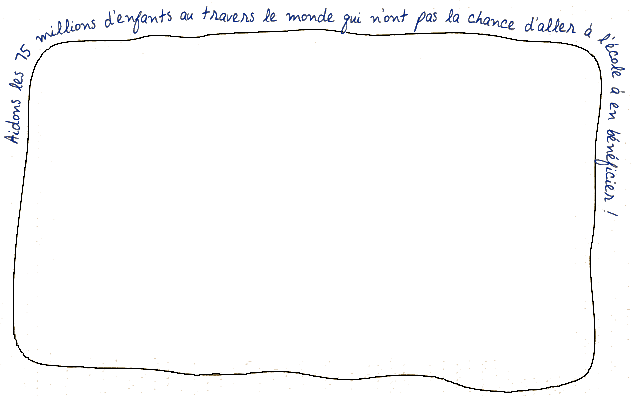 Aidons les 75 millions d'enfants au travers le monde qui n'ont pas la chance d'aller à l'école à en bénéficier !